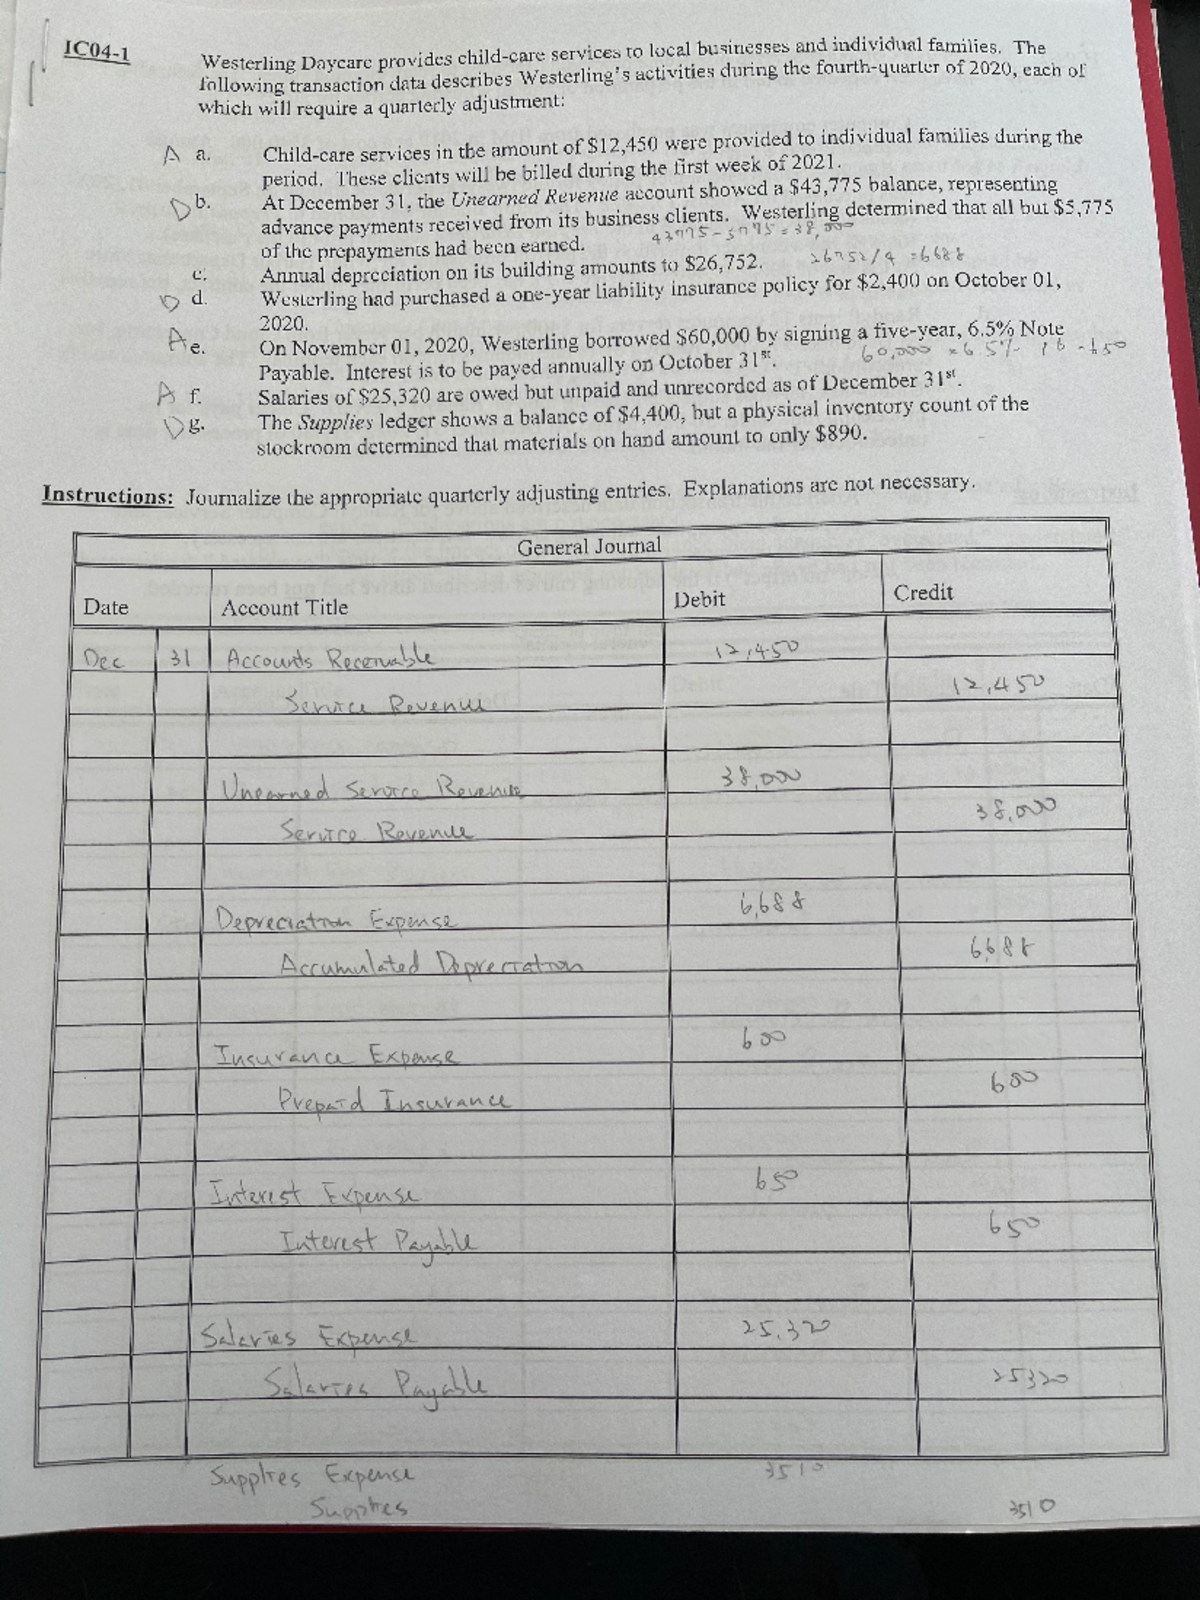 IC04-1
Westerling Daycare provides child-care services to local businesses and individual families. The
following transaction data describes Westerling's activities during the fourth-quarter of 2020, each of
which will require a quarterly adjustment:
A a. Child-care services in the amount of $12,450 were provided to individual families during the
period. These clients will be billed during the first week of 2021.
D b. At December 31, the Unearned Revenue account showed a $43,775 balance, representing
advance payments received from its business clients. Westerling determined that all but $5,775
of the prepayments had been earned. 43775-5775=38,000
c. Annual depreciation on its building amounts to $26,752. 26752/4=6688
D d. Westerling had purchased a one-year liability insurance policy for $2,400 on October 01,
2020.
A e. On November 01, 2020, Westerling borrowed $60,000 by signing a five-year, 6.5% Note
Payable. Interest is to be payed annually on October 31st. 60,000 × 6.5%
A f. Salaries of $25,320 are owed but unpaid and unrecorded as of December 31st.
D g. The Supplies ledger shows a balance of $4,400, but a physical inventory count of the
stockroom determined that materials on hand amount to only $890.
Instructions: Journalize the appropriate quarterly adjusting entries. Explanations are not necessary.
General Journal
Date Account Title Debit Credit
Dec 31 Accounts Receivable 12,450
Service Revenue 12,450
Unearned Service Revenue 38,000
Service Revenue 38,000
Depreciation Expense 6,688
Accumulated Depreciation 6,688
Insurance Expense 600
Prepaid Insurance 600
Interest Expense 650
Interest Payable 650
Salaries Expense 25,320
Salaries Payable 25320
Supplies Expense 3510
Supplies 3510